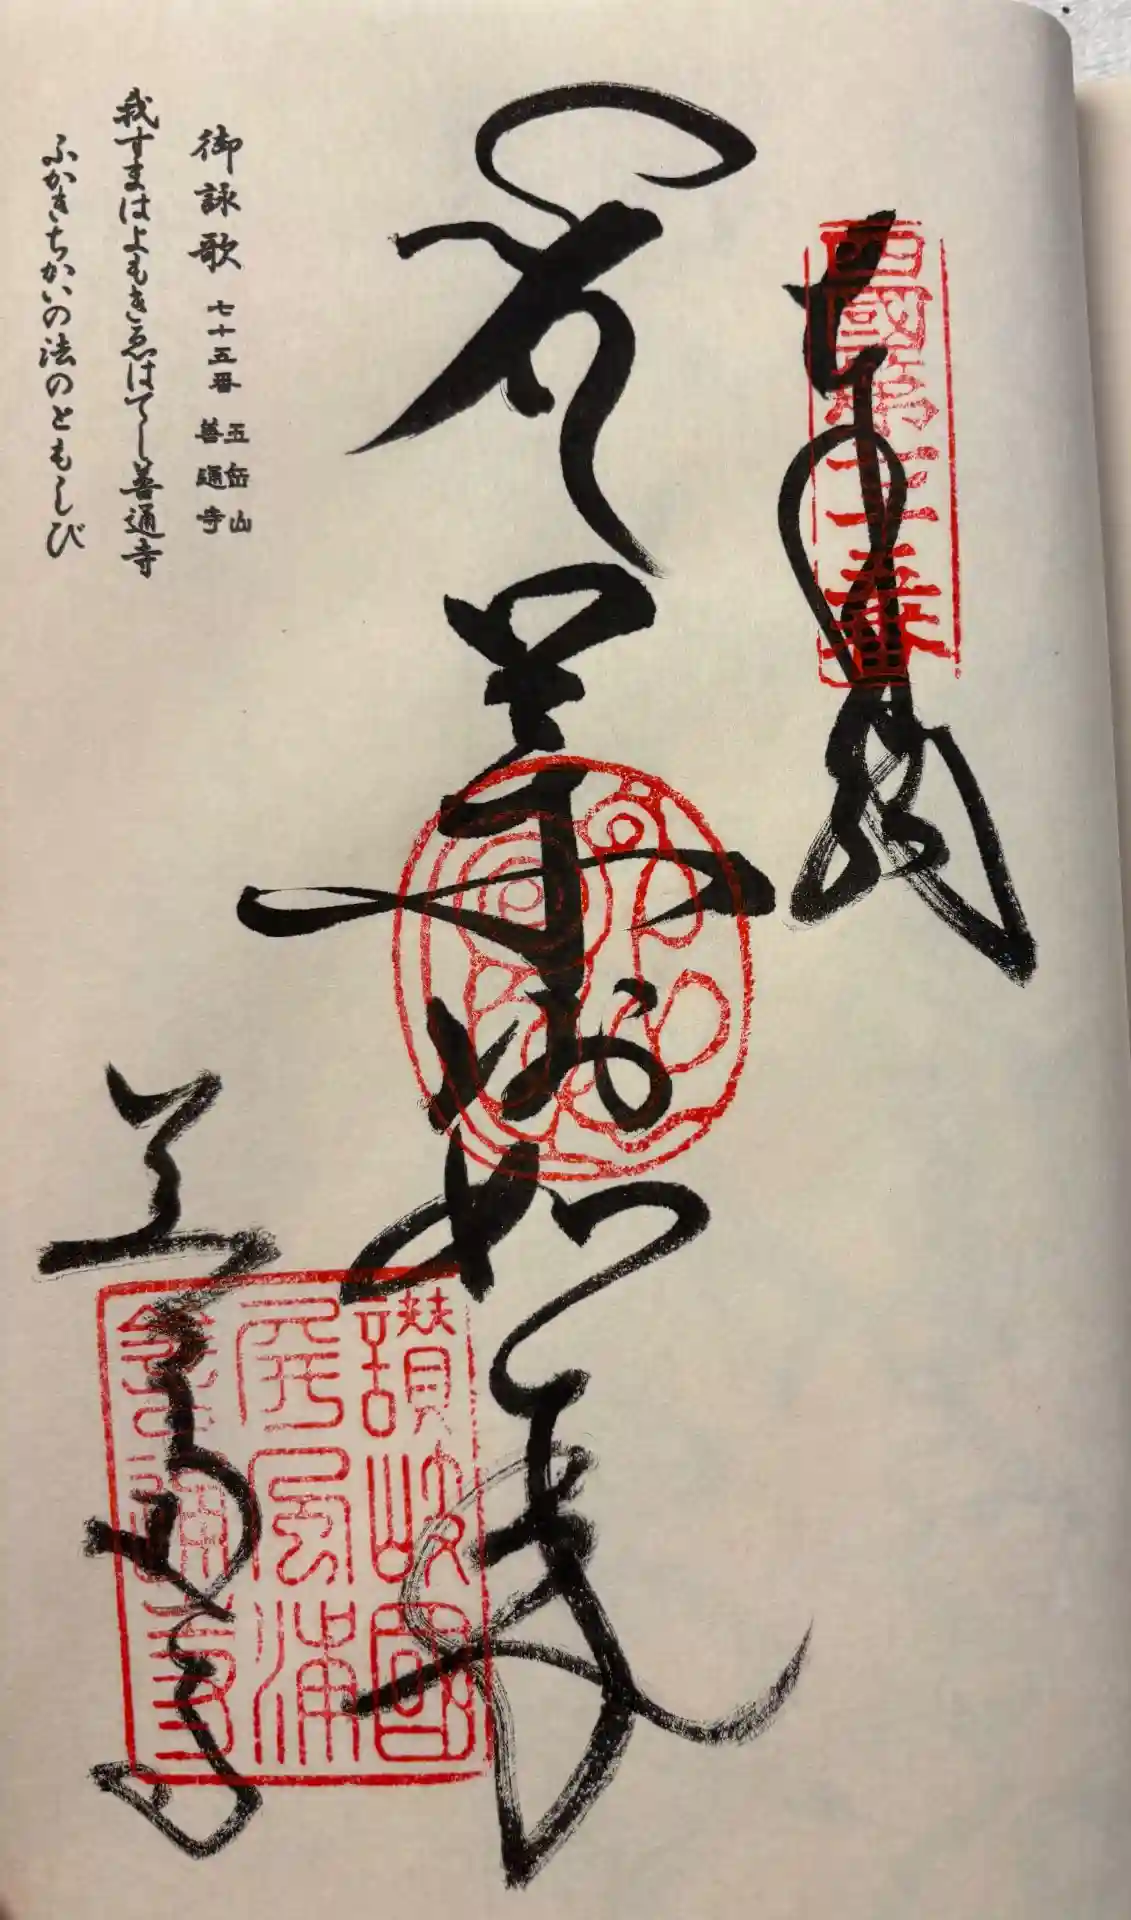 奉納
薬師如来
善通寺
讃岐國
屏風浦
善通寺
御詠歌 七十五番 五岳山 善通寺
我すまはよもきゑはてし善通寺
ふかきちかいの法のともしび